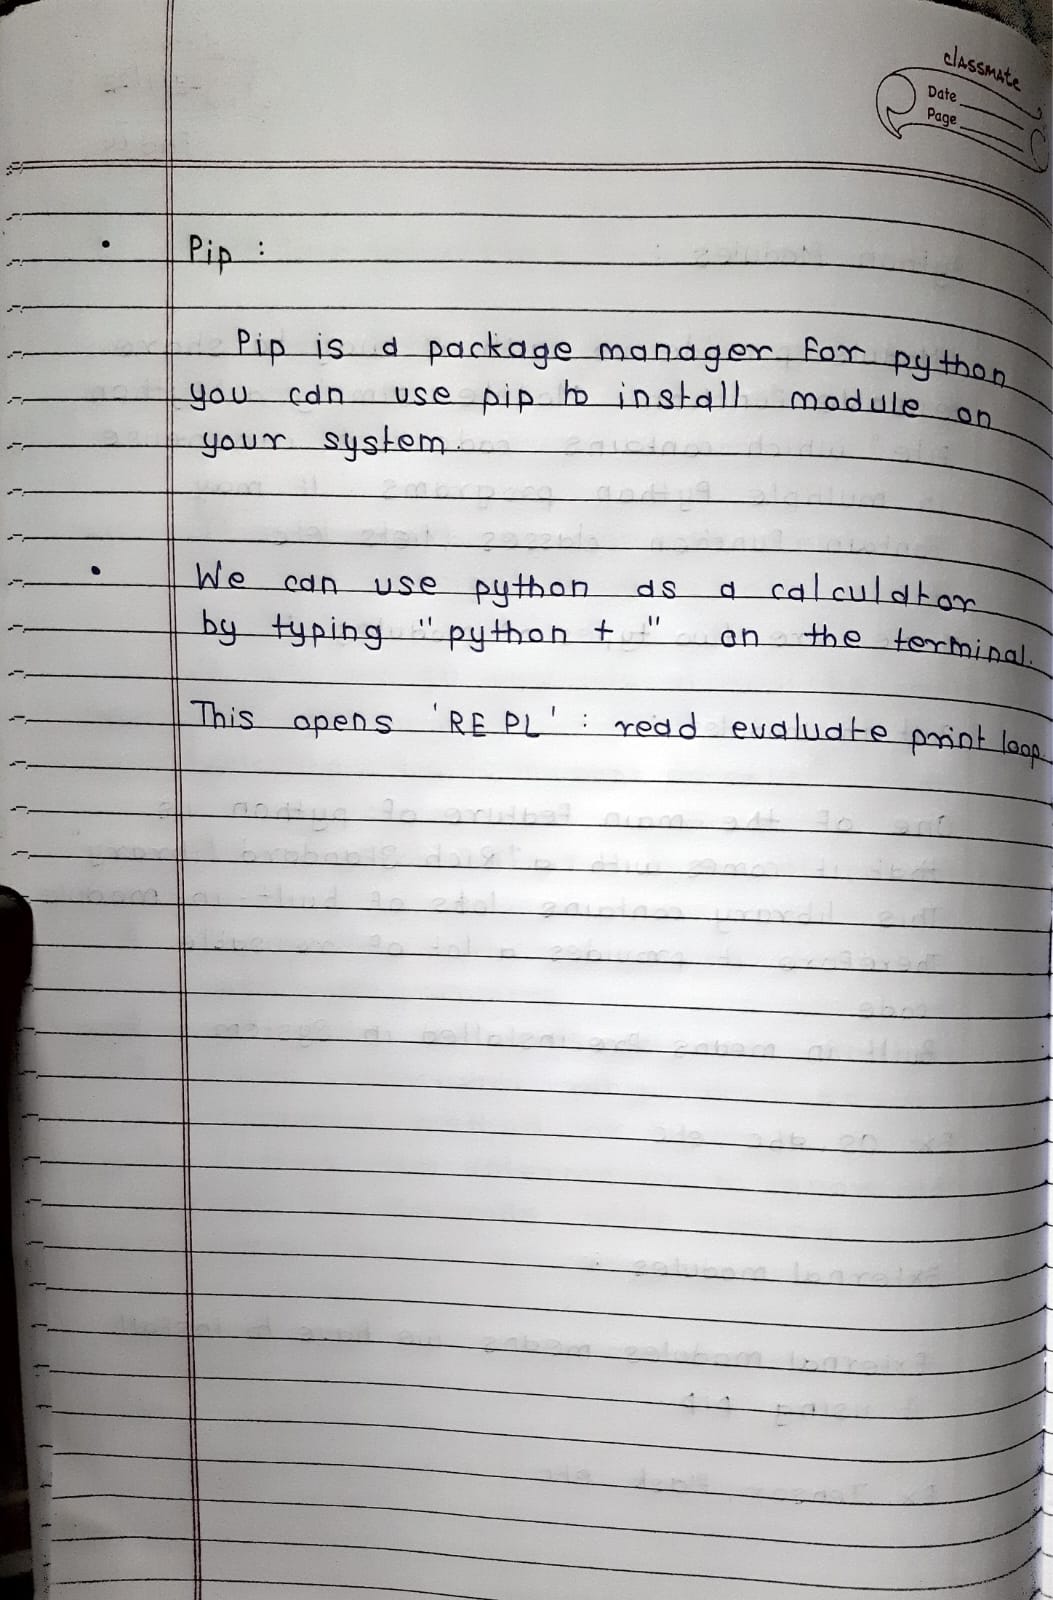 classmate
Date
Page
• Pip :
Pip is a package manager for python
you can use pip to install module on
your system.
• We can use python as a calculator
by typing "python + " on the terminal.
This opens 'REPL' : read evaluate print loop.